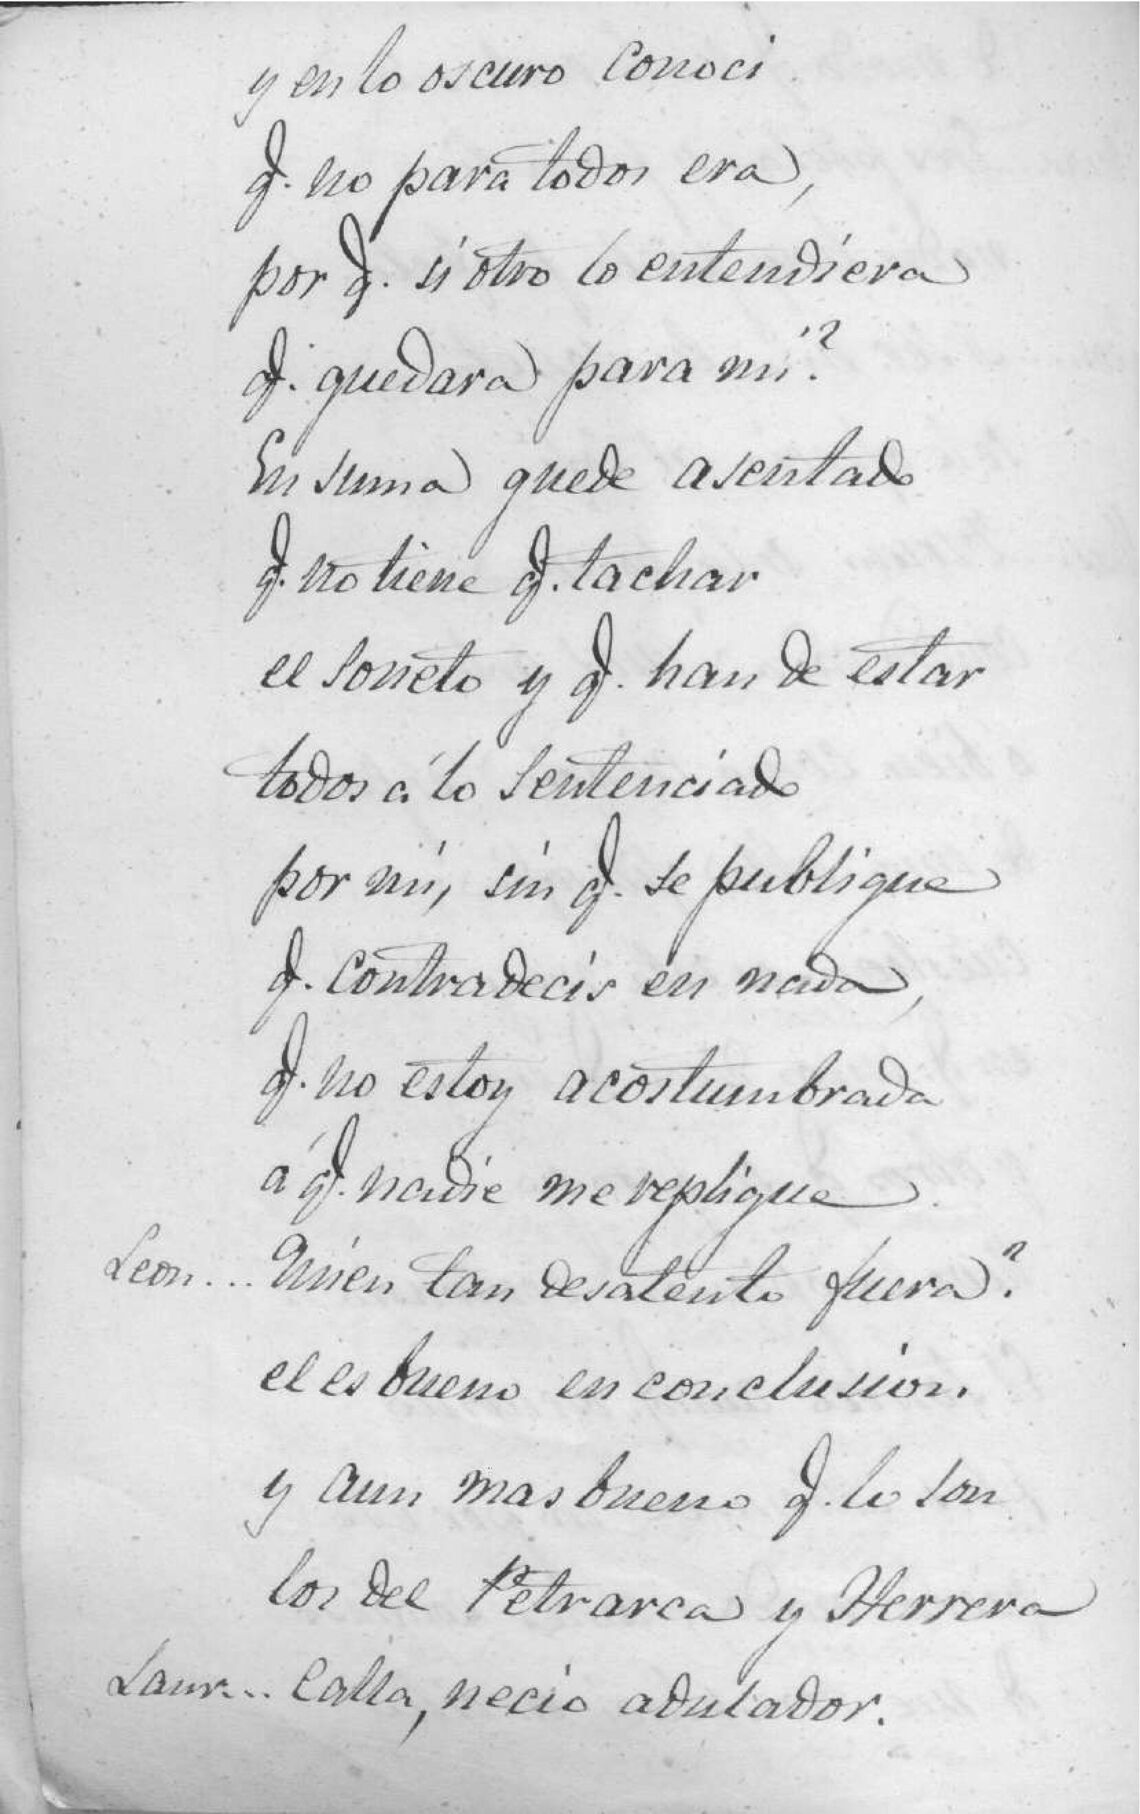 y en lo oscuro conoci
q. no para todos era,
por q. si otro lo entendiera
q. quedara para mi?
En suma quede asentado
q. no tiene q. tachar
el soneto y q. han de estar
todos á lo sentenciado
por mi, sin q. se publique
q. contradecis en nada,
q. no estoy acostumbrada
á q. nadie me replique.
Leon... Quien tan desatento fuera?
el es bueno en conclusion.
y aun mas bueno q. lo son
los del Petrarca y Herrera
Laur... Calla, necio adulador.